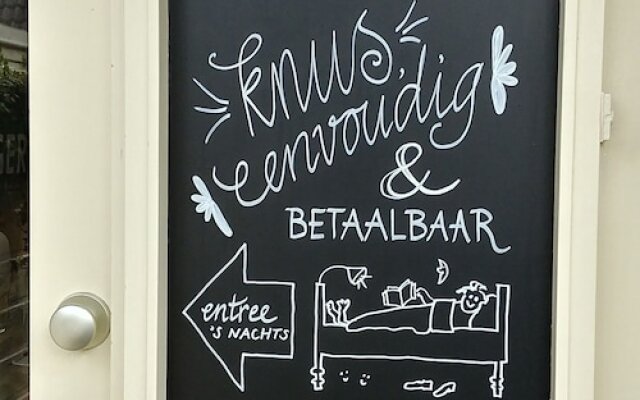 knus,
eenvoudig
&
BETAALBAAR
entree
'S NACHTS